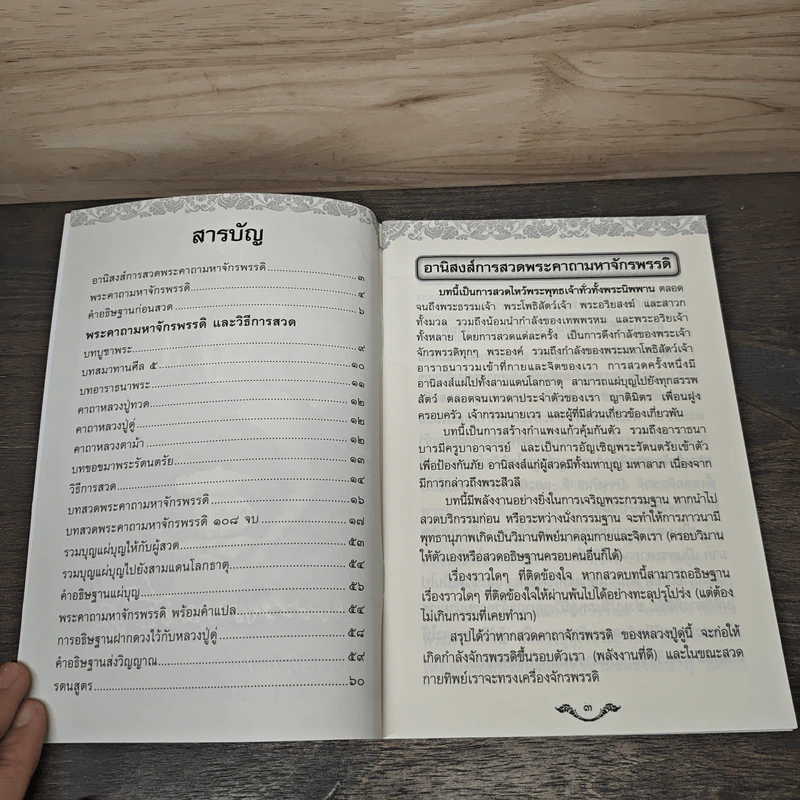 สารบัญ
อานิสงส์การสวดพระคาถามหาจักรพรรดิ....................๓
พระคาถามหาจักรพรรดิ....................๔
คำอธิษฐานก่อนสวด....................๖
พระคาถามหาจักรพรรดิ และวิธีการสวด
บทบูชาพระ....................๙
บทสมาทานศีล ๕....................๑๐
บทอาราธนาพระ....................๑๑
คาถาหลวงปู่ทวด....................๑๒
คาถาหลวงปู่ดู่....................๑๒
คาถาหลวงตาม้า....................๑๒
บทขอขมาพระรัตนตรัย....................๑๓
วิธีการสวด....................๑๔
บทสวดพระคาถามหาจักรพรรดิ....................๑๖
บทสวดพระคาถามหาจักรพรรดิ ๑๐๘ จบ....................๑๗
รวมบุญแผ่บุญให้กับผู้สวด....................๕๓
รวมบุญแผ่บุญไปยังสามแดนโลกธาตุ....................๕๔
คำอธิษฐานแผ่บุญ....................๕๖
พระคาถามหาจักรพรรดิ พร้อมคำแปล....................๕๔
การอธิษฐานฝากดวงไว้กับหลวงปู่ดู่....................๕๘
คำอธิษฐานส่งวิญญาณ....................๕๙
รตนสูตร....................๖๐
อานิสงส์การสวดพระคาถามหาจักรพรรดิ
บทนี้เป็นการสวดไหว้พระพุทธเจ้าทั่วทั้งพระนิพพาน ตลอด
จนถึงพระธรรมเจ้า พระโพธิสัตว์เจ้า พระอริยสงฆ์ และสาวก
ทั้งมวล รวมถึงน้อมนำกำลังของเทพพรหม และพระอริยเจ้า
ทั้งหลาย โดยการสวดแต่ละครั้ง เป็นการดึงกำลังของพระเจ้า
จักรพรรดิทุกๆ พระองค์ รวมถึงกำลังของพระมหาโพธิสัตว์เจ้า
อาราธนารวมเข้าที่กายและจิตของเรา การสวดครั้งหนึ่งมี
อานิสงส์แผ่ไปทั้งสามแดนโลกธาตุ สามารถแผ่บุญไปยังทุกสรรพ
สัตว์ ตลอดจนเทวดาประจำตัวของเรา ญาติมิตร เพื่อนฝูง
ครอบครัว เจ้ากรรมนายเวร และผู้ที่มีส่วนเกี่ยวข้องเกี่ยวพัน
บทนี้เป็นการสร้างกำแพงแก้วคุ้มกันตัว รวมถึงอาราธนา
บารมีครูบาอาจารย์ และเป็นการอัญเชิญพระรัตนตรัยเข้าตัว
เพื่อป้องกันภัย อานิสงส์แก่ผู้สวดมีทั้งมหาบุญ มหาลาภ เนื่องจาก
มีการกล่าวถึงพระสีวลี
บทนี้มีพลังงานอย่างยิ่งในการเจริญพระกรรมฐาน หากนำไป
สวดบริกรรมก่อน หรือระหว่างนั่งกรรมฐาน จะทำให้การภาวนามี
พุทธานุภาพเกิดเป็นวิมานทิพย์มาคลุมกายและจิตเรา (ครอบวิมาน
ให้ตัวเองหรือสวดอธิษฐานครอบคนอื่นก็ได้)
เรื่องราวใดๆ ที่ติดข้องใจ หากสวดบทนี้สามารถอธิษฐาน
เรื่องราวใดๆ ที่ติดข้องใจให้ผ่านพ้นไปได้อย่างทะลุปรุโปร่ง (แต่ต้อง
ไม่เกินกรรมที่เคยทำมา)
สรุปได้ว่าหากสวดคาถาจักรพรรดิ ของหลวงปู่ดู่นี้ จะก่อให้
เกิดกำลังจักรพรรดิขึ้นรอบตัวเรา (พลังงานที่ดี) และในขณะสวด
กายทิพย์เราจะทรงเครื่องจักรพรรดิ
๓